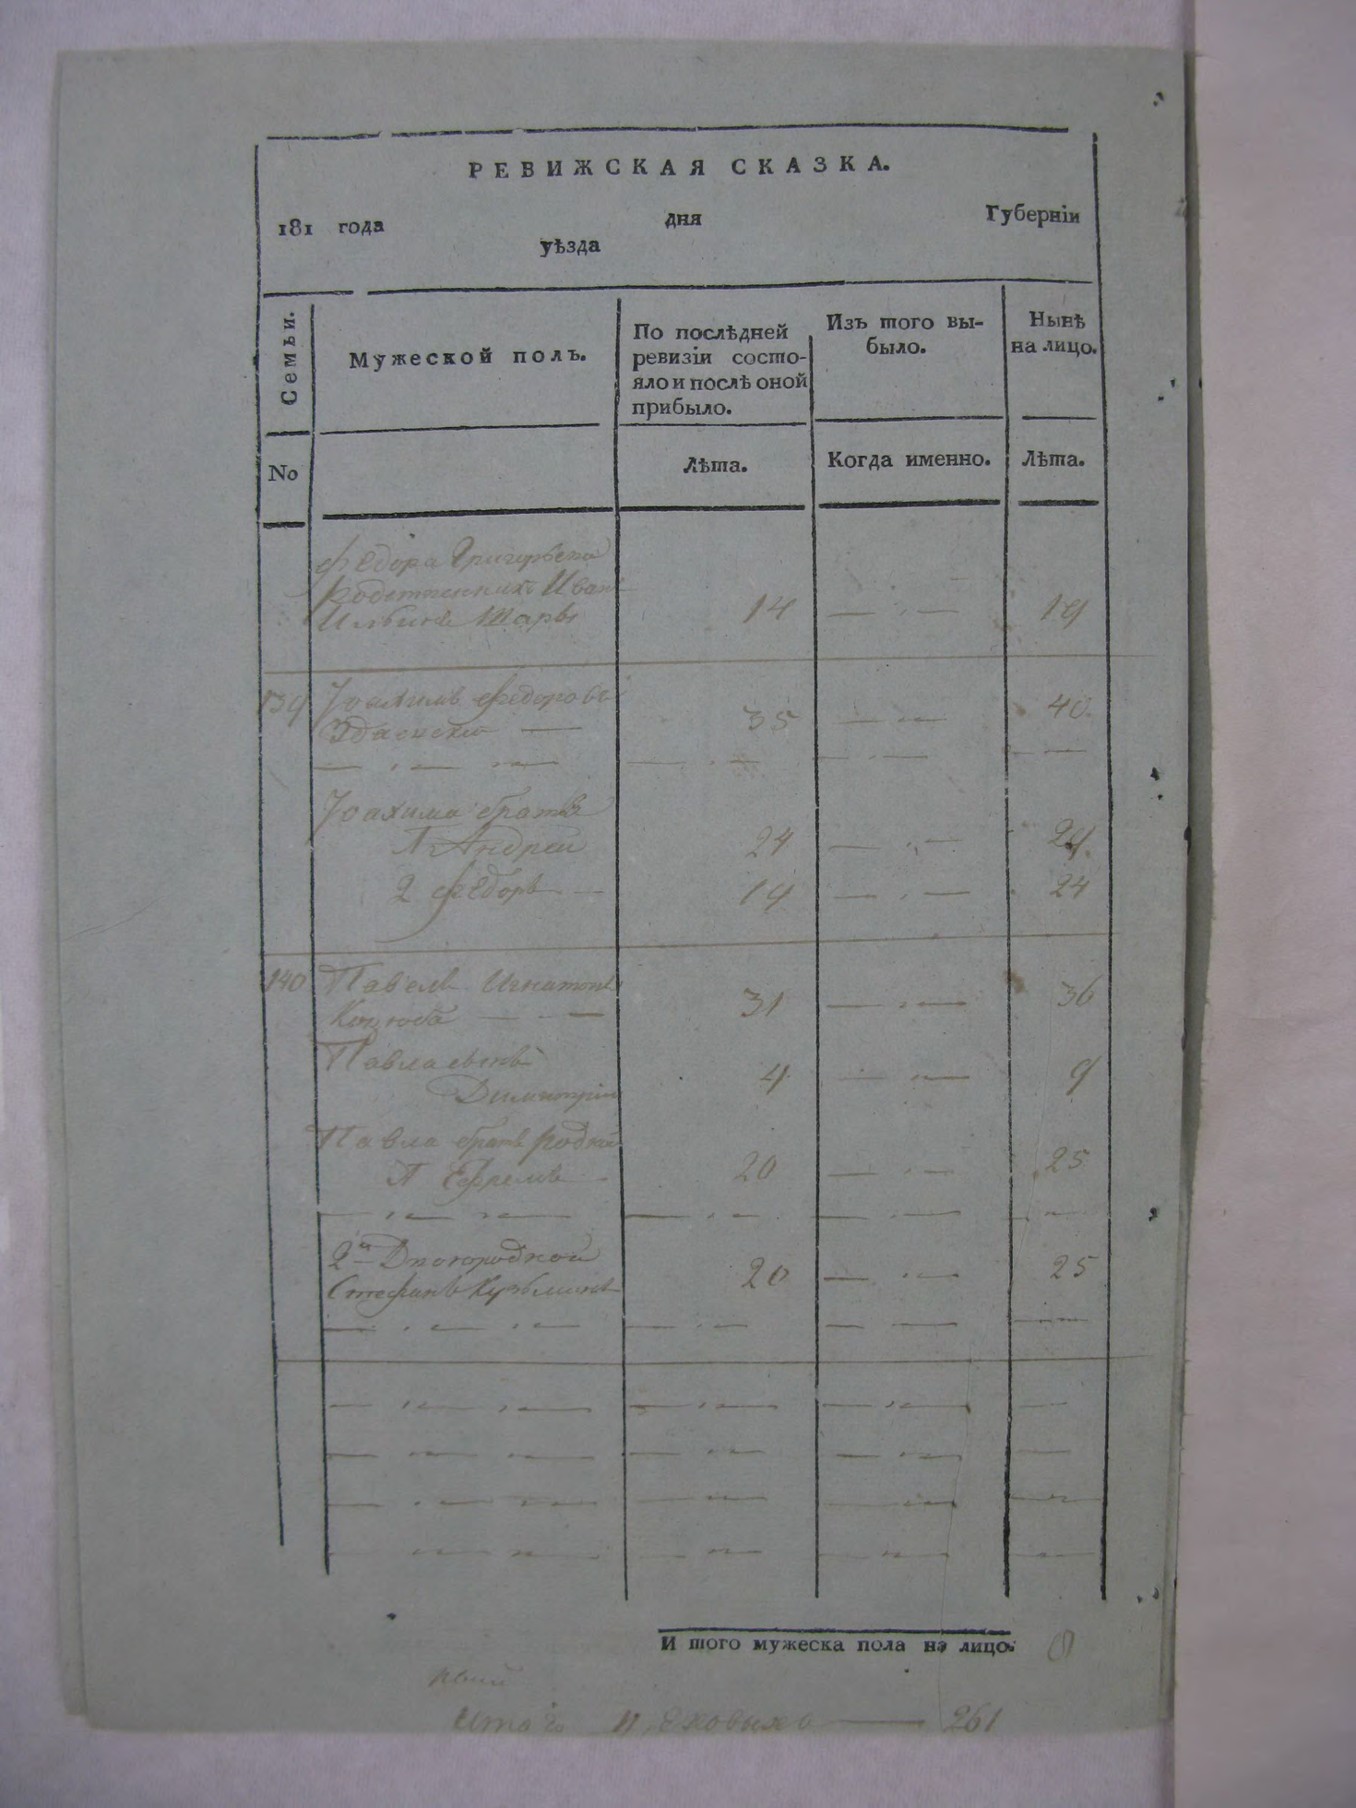 РЕВИЖСКАЯ СКАЗКА.
181 года дня Губерніи
уѣзда
Семьи. Мужеской полъ. По послѣдней ревизіи состояло и послѣ оной прибыло. Изъ того выбыло. Нынѣ на лицо.
No Лѣта. Когда именно. Лѣта.
Федора Григорьева
родственникъ Иван
Ильинъ 14 19
139 Іоахимъ Федоровъ
35 40
Іоахима братья
1 Андрей 24 29
2 Федоръ 19 24
140 Павелъ Игнатовъ
31 36
Павла сынъ
Димитрій 4 9
Павла братъ родной
1 Ефремъ 20 25
2й Двоюродной
Стефанъ Кузьминъ 20 25
И того мужеска пола на лицо. 8
Итого 261